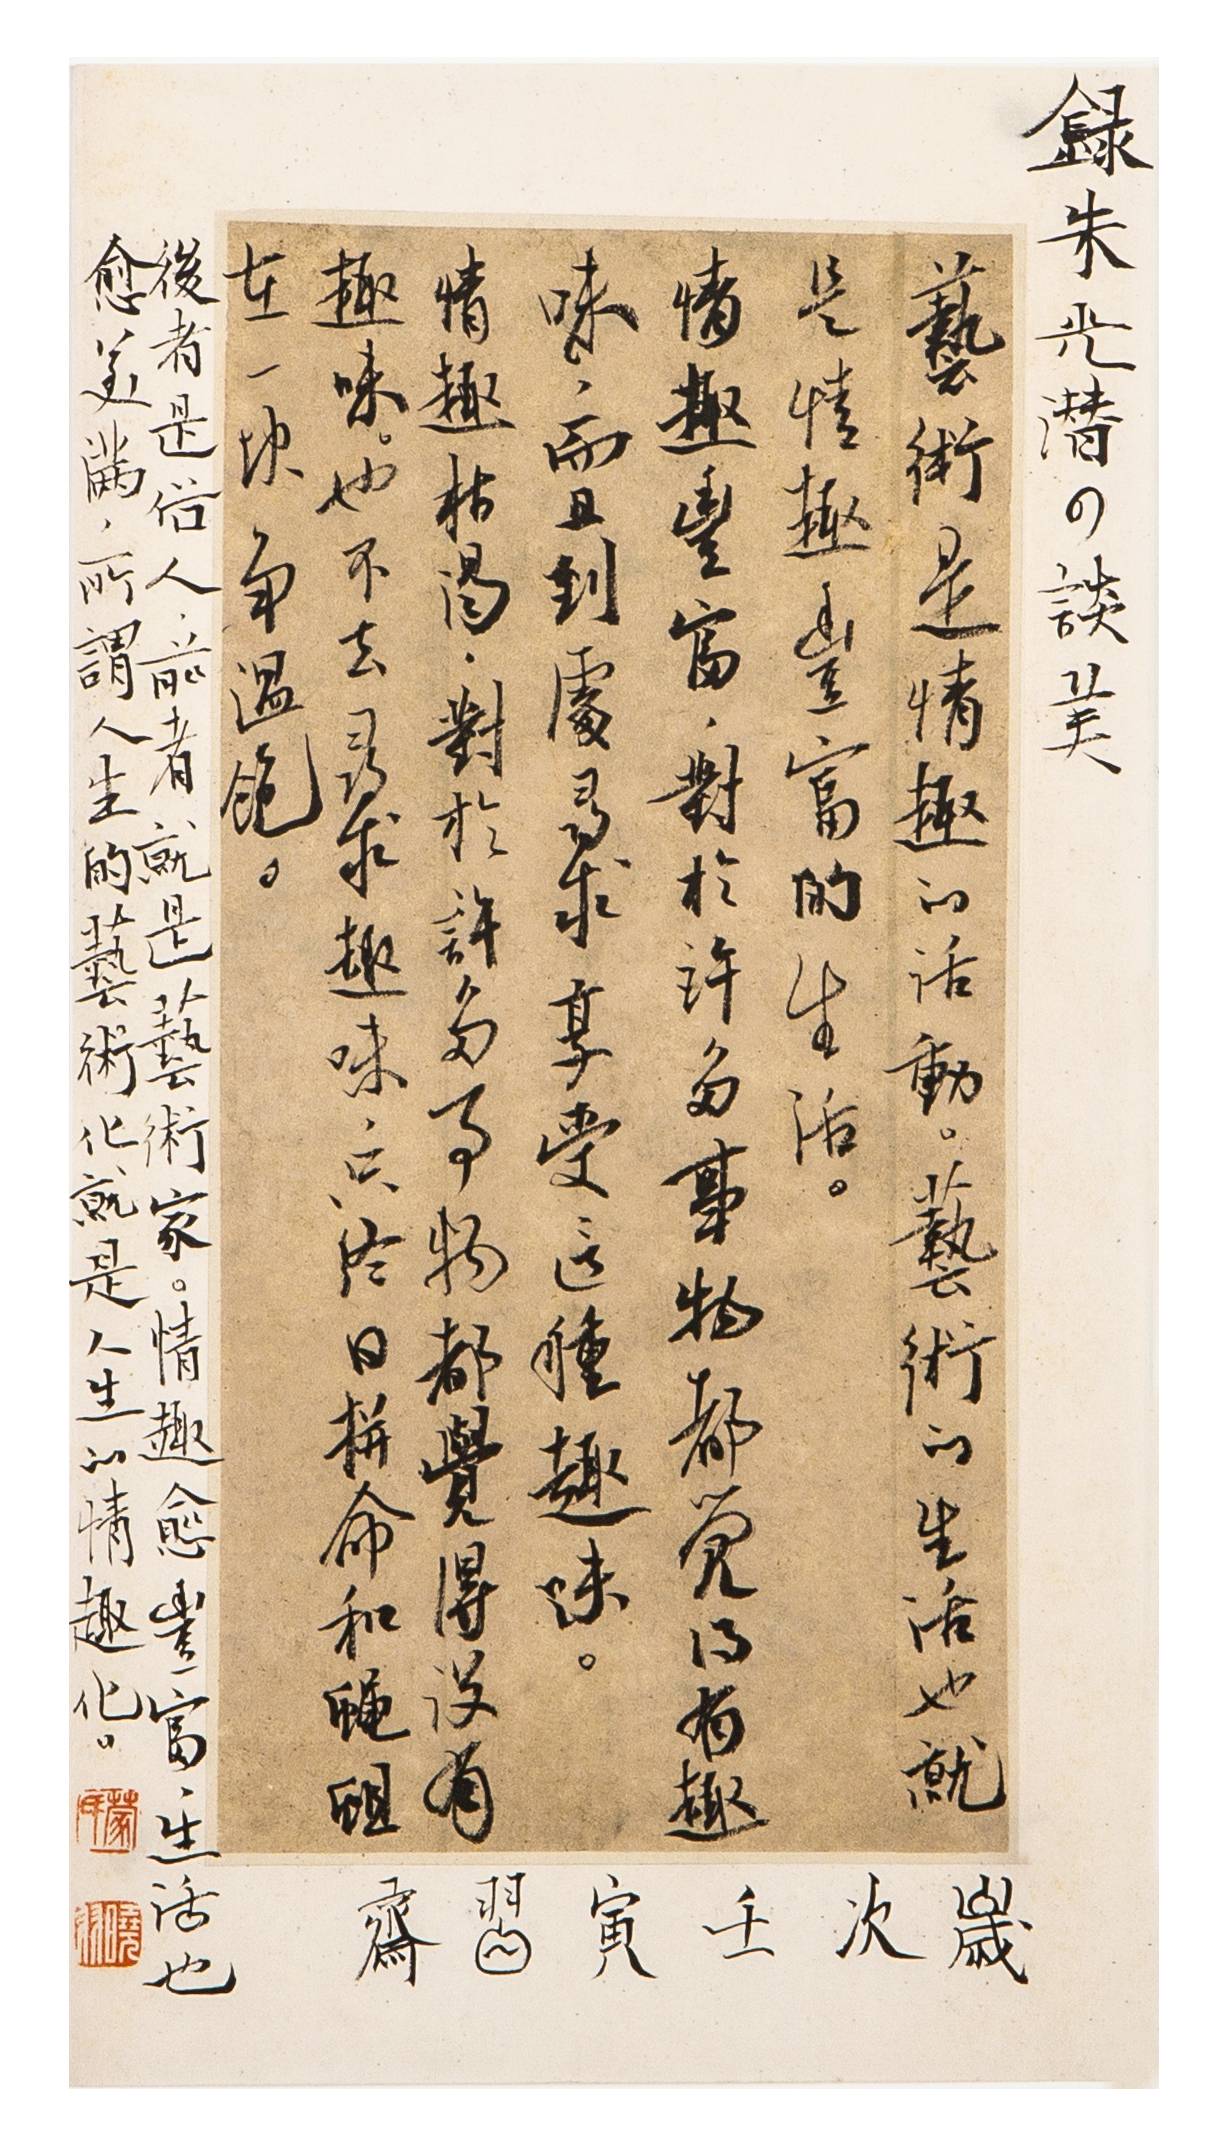 録朱光潜の談美
藝術是情趣的活動。藝術的生活也就
是情趣豐富的生活。
情趣豐富、對於許多事物都覺得有趣
味、而且到處尋求享受這種趣味。
情趣枯渴、對於許多事物都覺得没有
趣味。也不去尋求趣味、只終日拼命和蠅蛆
在一块争温飽。
後者是俗人、前者就是藝術家。情趣愈豐富、生活也
愈美满、所謂人生的藝術化就是人生的情趣化。
歲次壬寅習齋